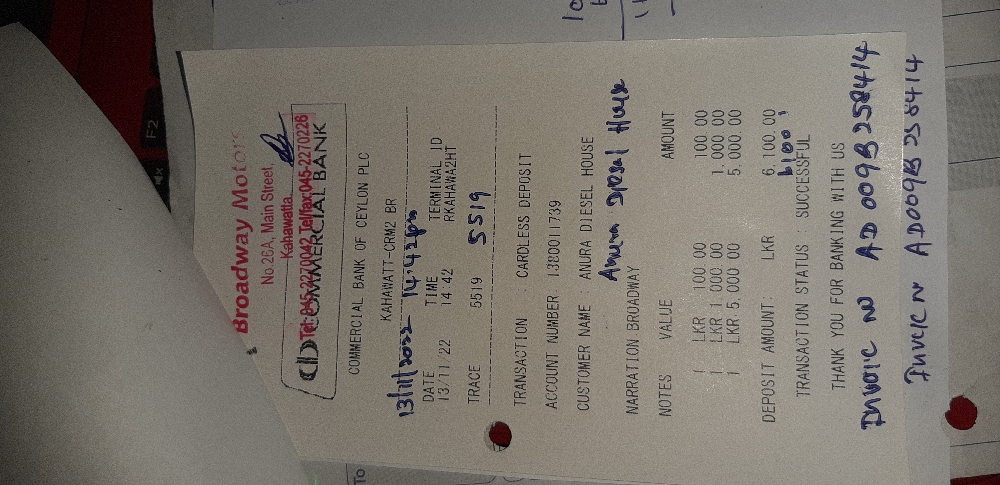 Broadway Motors
No.26A, Main Street,
Kahawatta
Tel: 045-2270042 Tel/fax:045-2270226
COMMERCIAL BANK
COMMERCIAL BANK OF CEYLON PLC
KAHAWATT-CRM2 BR
13/11/2022 14:42pm
DATE TIME TERMINAL ID
13/11/22 14:42 PKAHAWA2HT
TRACE 5519 5519
TRANSACTION : CARDLESS DEPOSIT
ACCOUNT NUMBER 1380011739
CUSTOMER NAME : ANURA DIESEL HOUSE
Anura Diesel House
NARRATION BROADWAY
NOTES VALUE AMOUNT
1 LKR 100 00 100 00
1 LKR 1 000 00 1,000 00
1 LKR 5,000 00 5,000.00
DEPOSIT AMOUNT: LKR 6,100.00
6100
TRANSACTION STATUS : SUCCESSFUL
THANK YOU FOR BANKING WITH US
Invoic no AD 009B 258414
AD009B 258414
F2
To